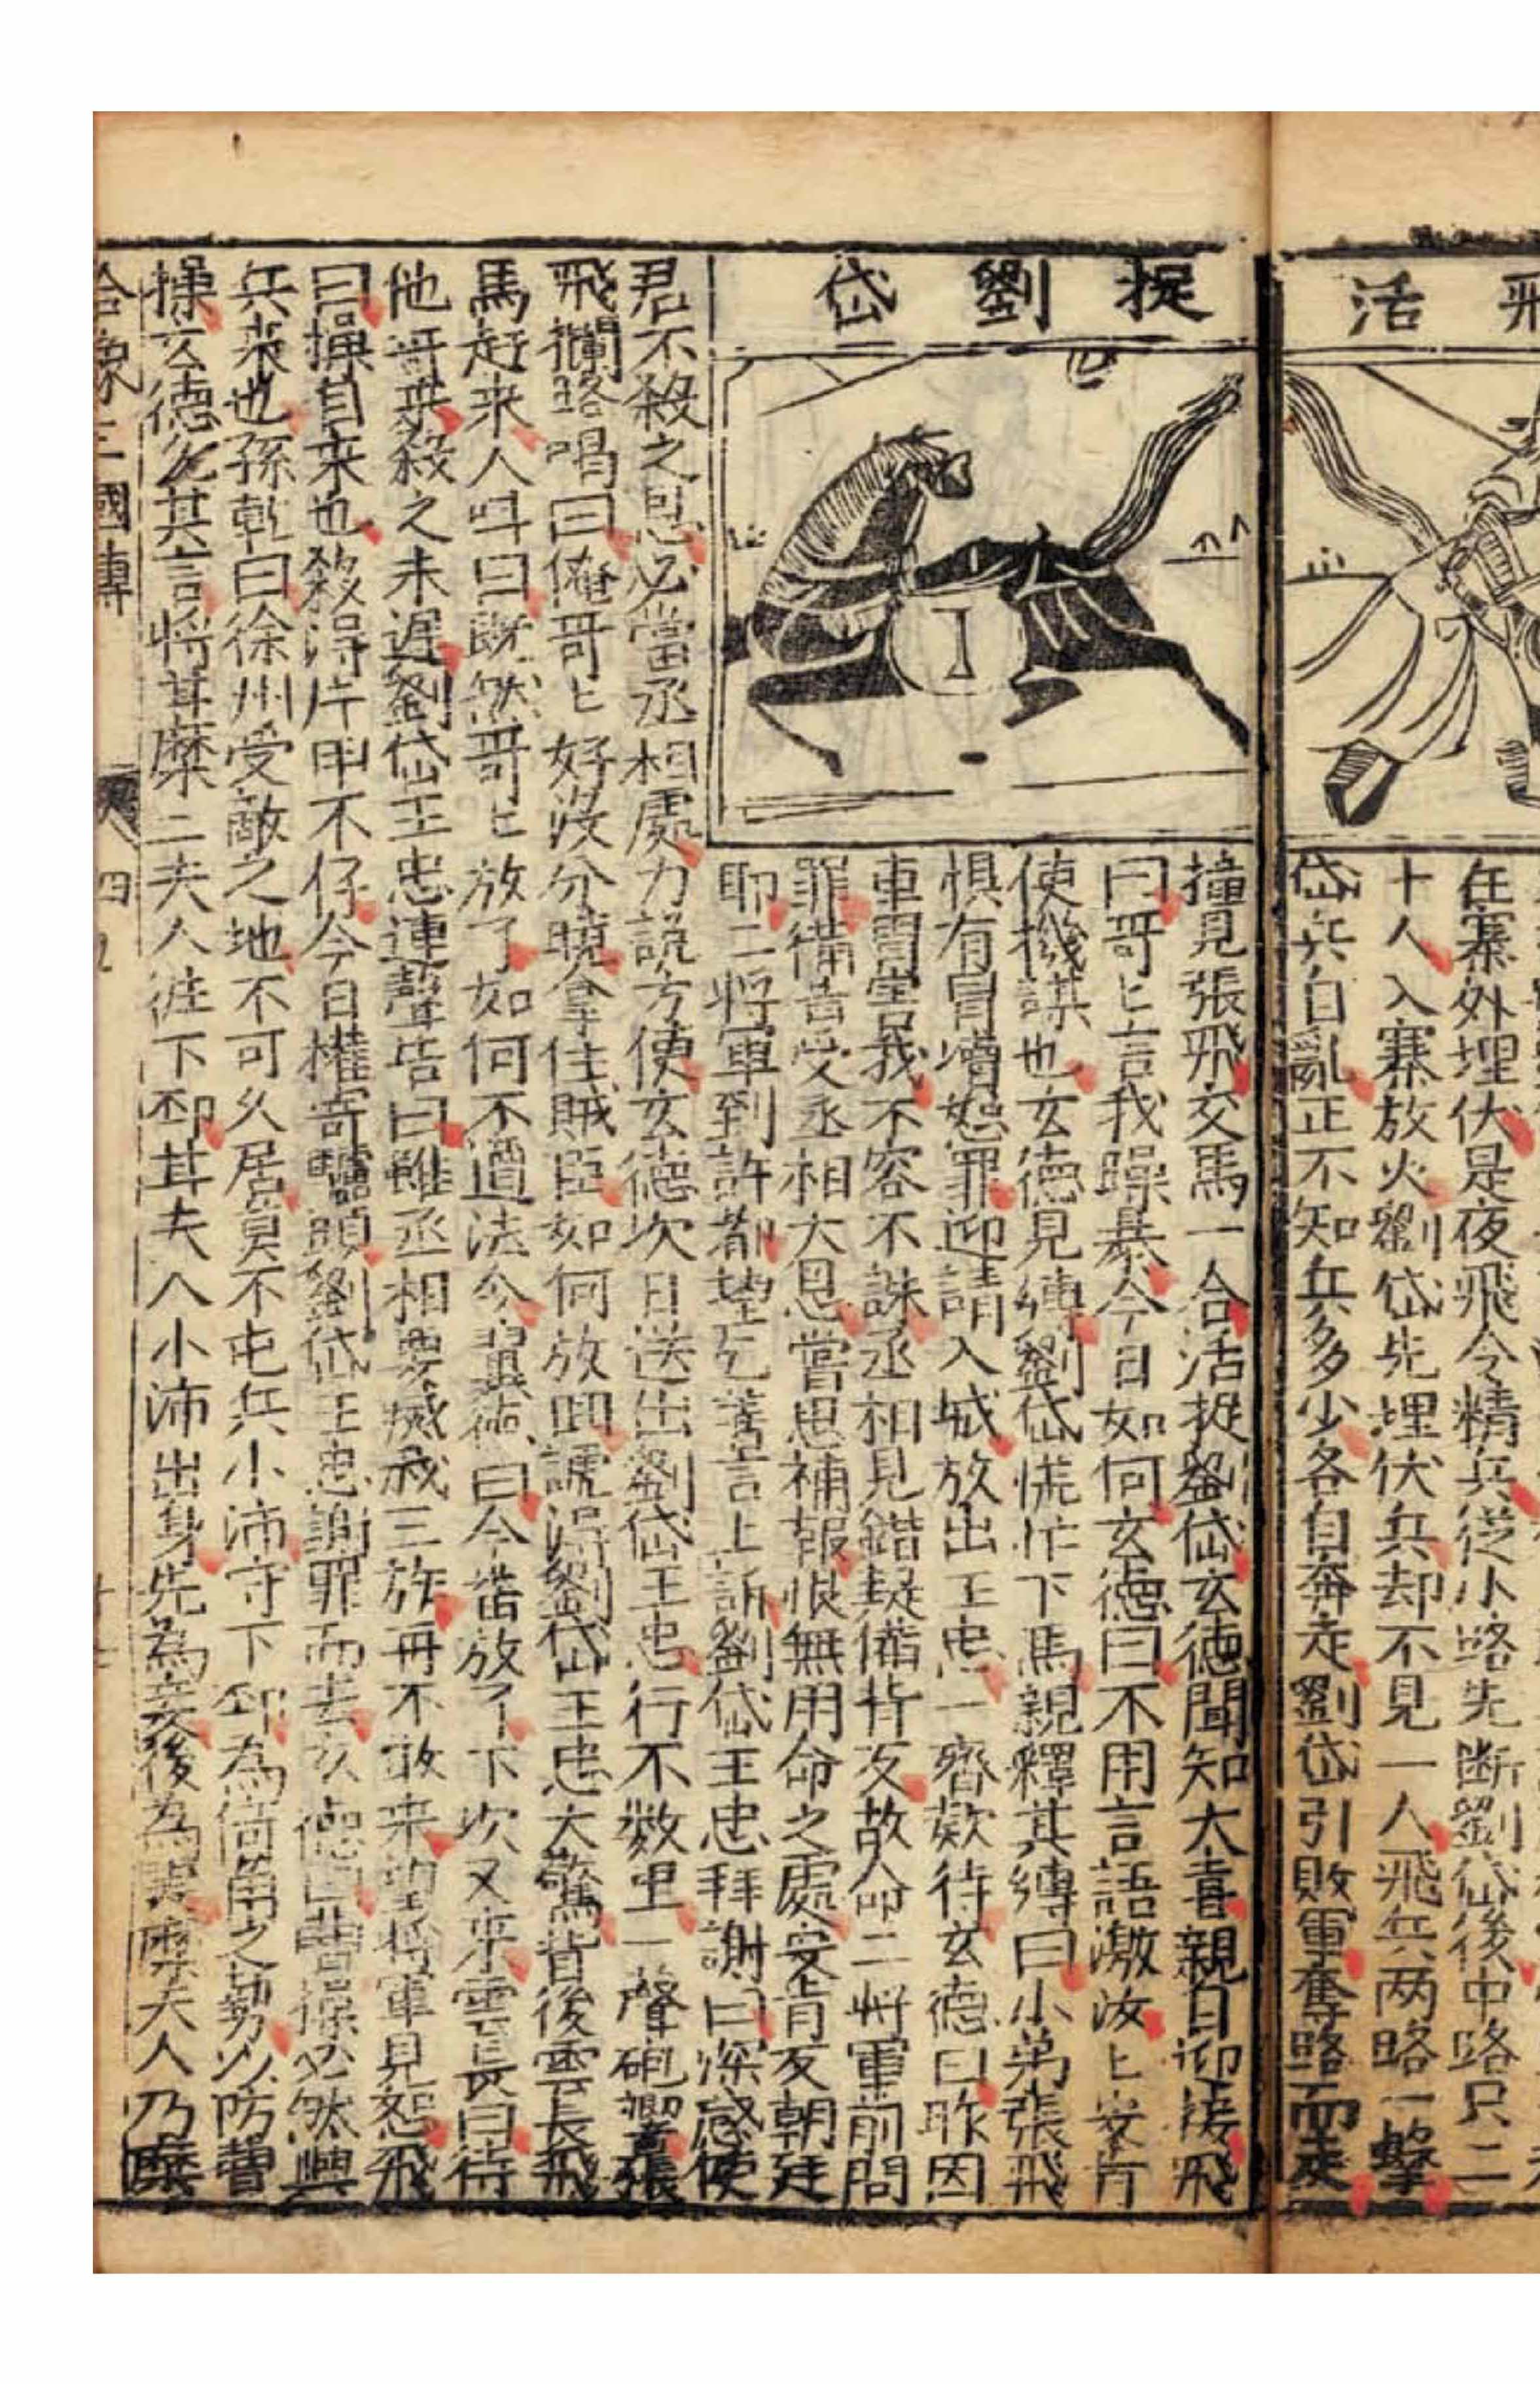 飛活
捉劉岱
在寨外埋伏是夜飛令精兵從小路先断劉岱後中路只二
十人入寨放火劉岱先埋伏兵却不見一人飛兵两路一擊
岱兵自亂正不知兵多少各自奔走劉岱引敗軍奪路而走
撞見張飛交馬一合活捉劉岱玄德聞知大喜親自迎接飛
曰哥〻言我躁暴今日如何玄德曰不用言語激汝〻安肯
使機謀也玄德見縛劉岱慌忙下馬親釋其縛曰小弟張飛
惧有冒瀆恕罪迎請入城放出王忠一齊欵待玄德曰昨因
車冑害我不容不誅丞相見錯疑備背反故命二將軍前問
罪備昔受丞相大恩嘗思補報恨無用命之處安肯反朝廷
耶二將軍到許都望乞善言上訴劉岱王忠拜謝曰深感使
君不殺之恩必當丞相處力説方便玄德次日送出劉岱王忠行不数里一聲砲響張
飛攔路喝曰俺哥〻好没分曉拿住賊臣如何放回諕得劉岱王忠大驚背後雲長飛
馬赶来人呌曰既然哥〻放了如何不遵法令翼德曰今番放了下次又來雲長曰待
他哥來殺之未遲劉岱王忠連聲告曰雖丞相要滅我三族再不敢来望將軍見恕飛
曰操自来也殺得片甲不存今日權寄驢頭劉岱王忠謝罪而去玄德曰曹操必然興
兵来也孫乾曰徐州受敵之地不可久居莫不屯兵小沛守下邳為倚角之勢以防曹
操玄德從其言將甘糜二夫人徃下邳甘夫人小沛出身先為妾後為妻糜夫人乃糜
合像三國傳